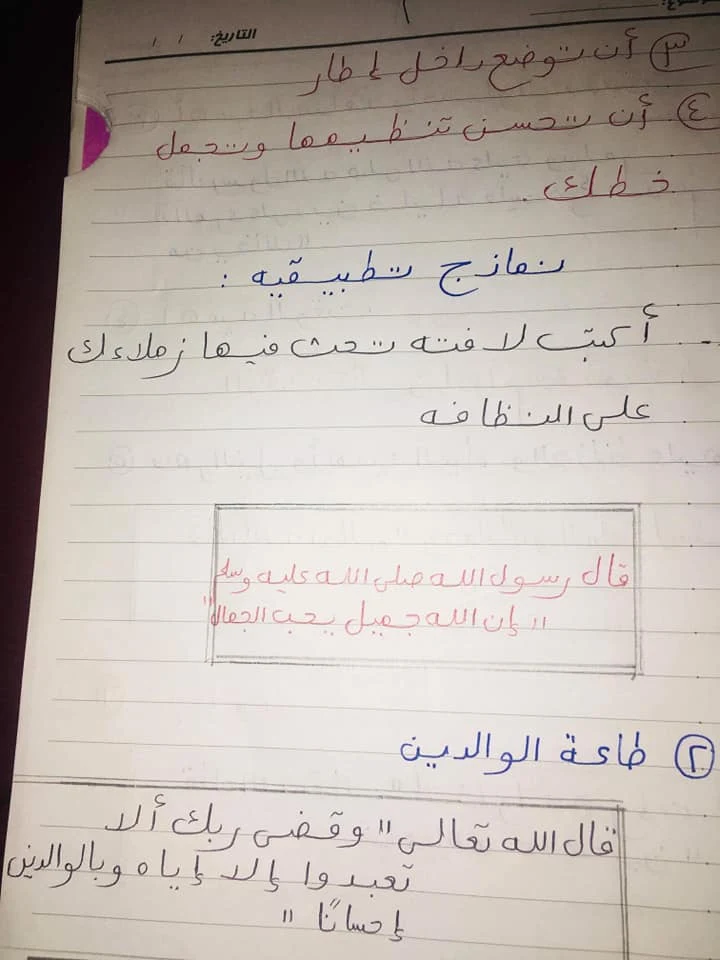 التاريخ: / /
٣ أن توضع داخل إطار
٤ أن تحسن تنظيمها وتجمل
خطك .
نماذج تطبيقيه :
- أكتب لافته تحث فيها زملاءك
على النظافه
قال رسول الله صلى الله عليه وسلم
"إن الله جميل يحب الجمال"
٢ طاعة الوالدين
قال الله تعالى "وقضى ربك ألا
تعبدوا إلا إياه وبالوالدين
إحسانًا "